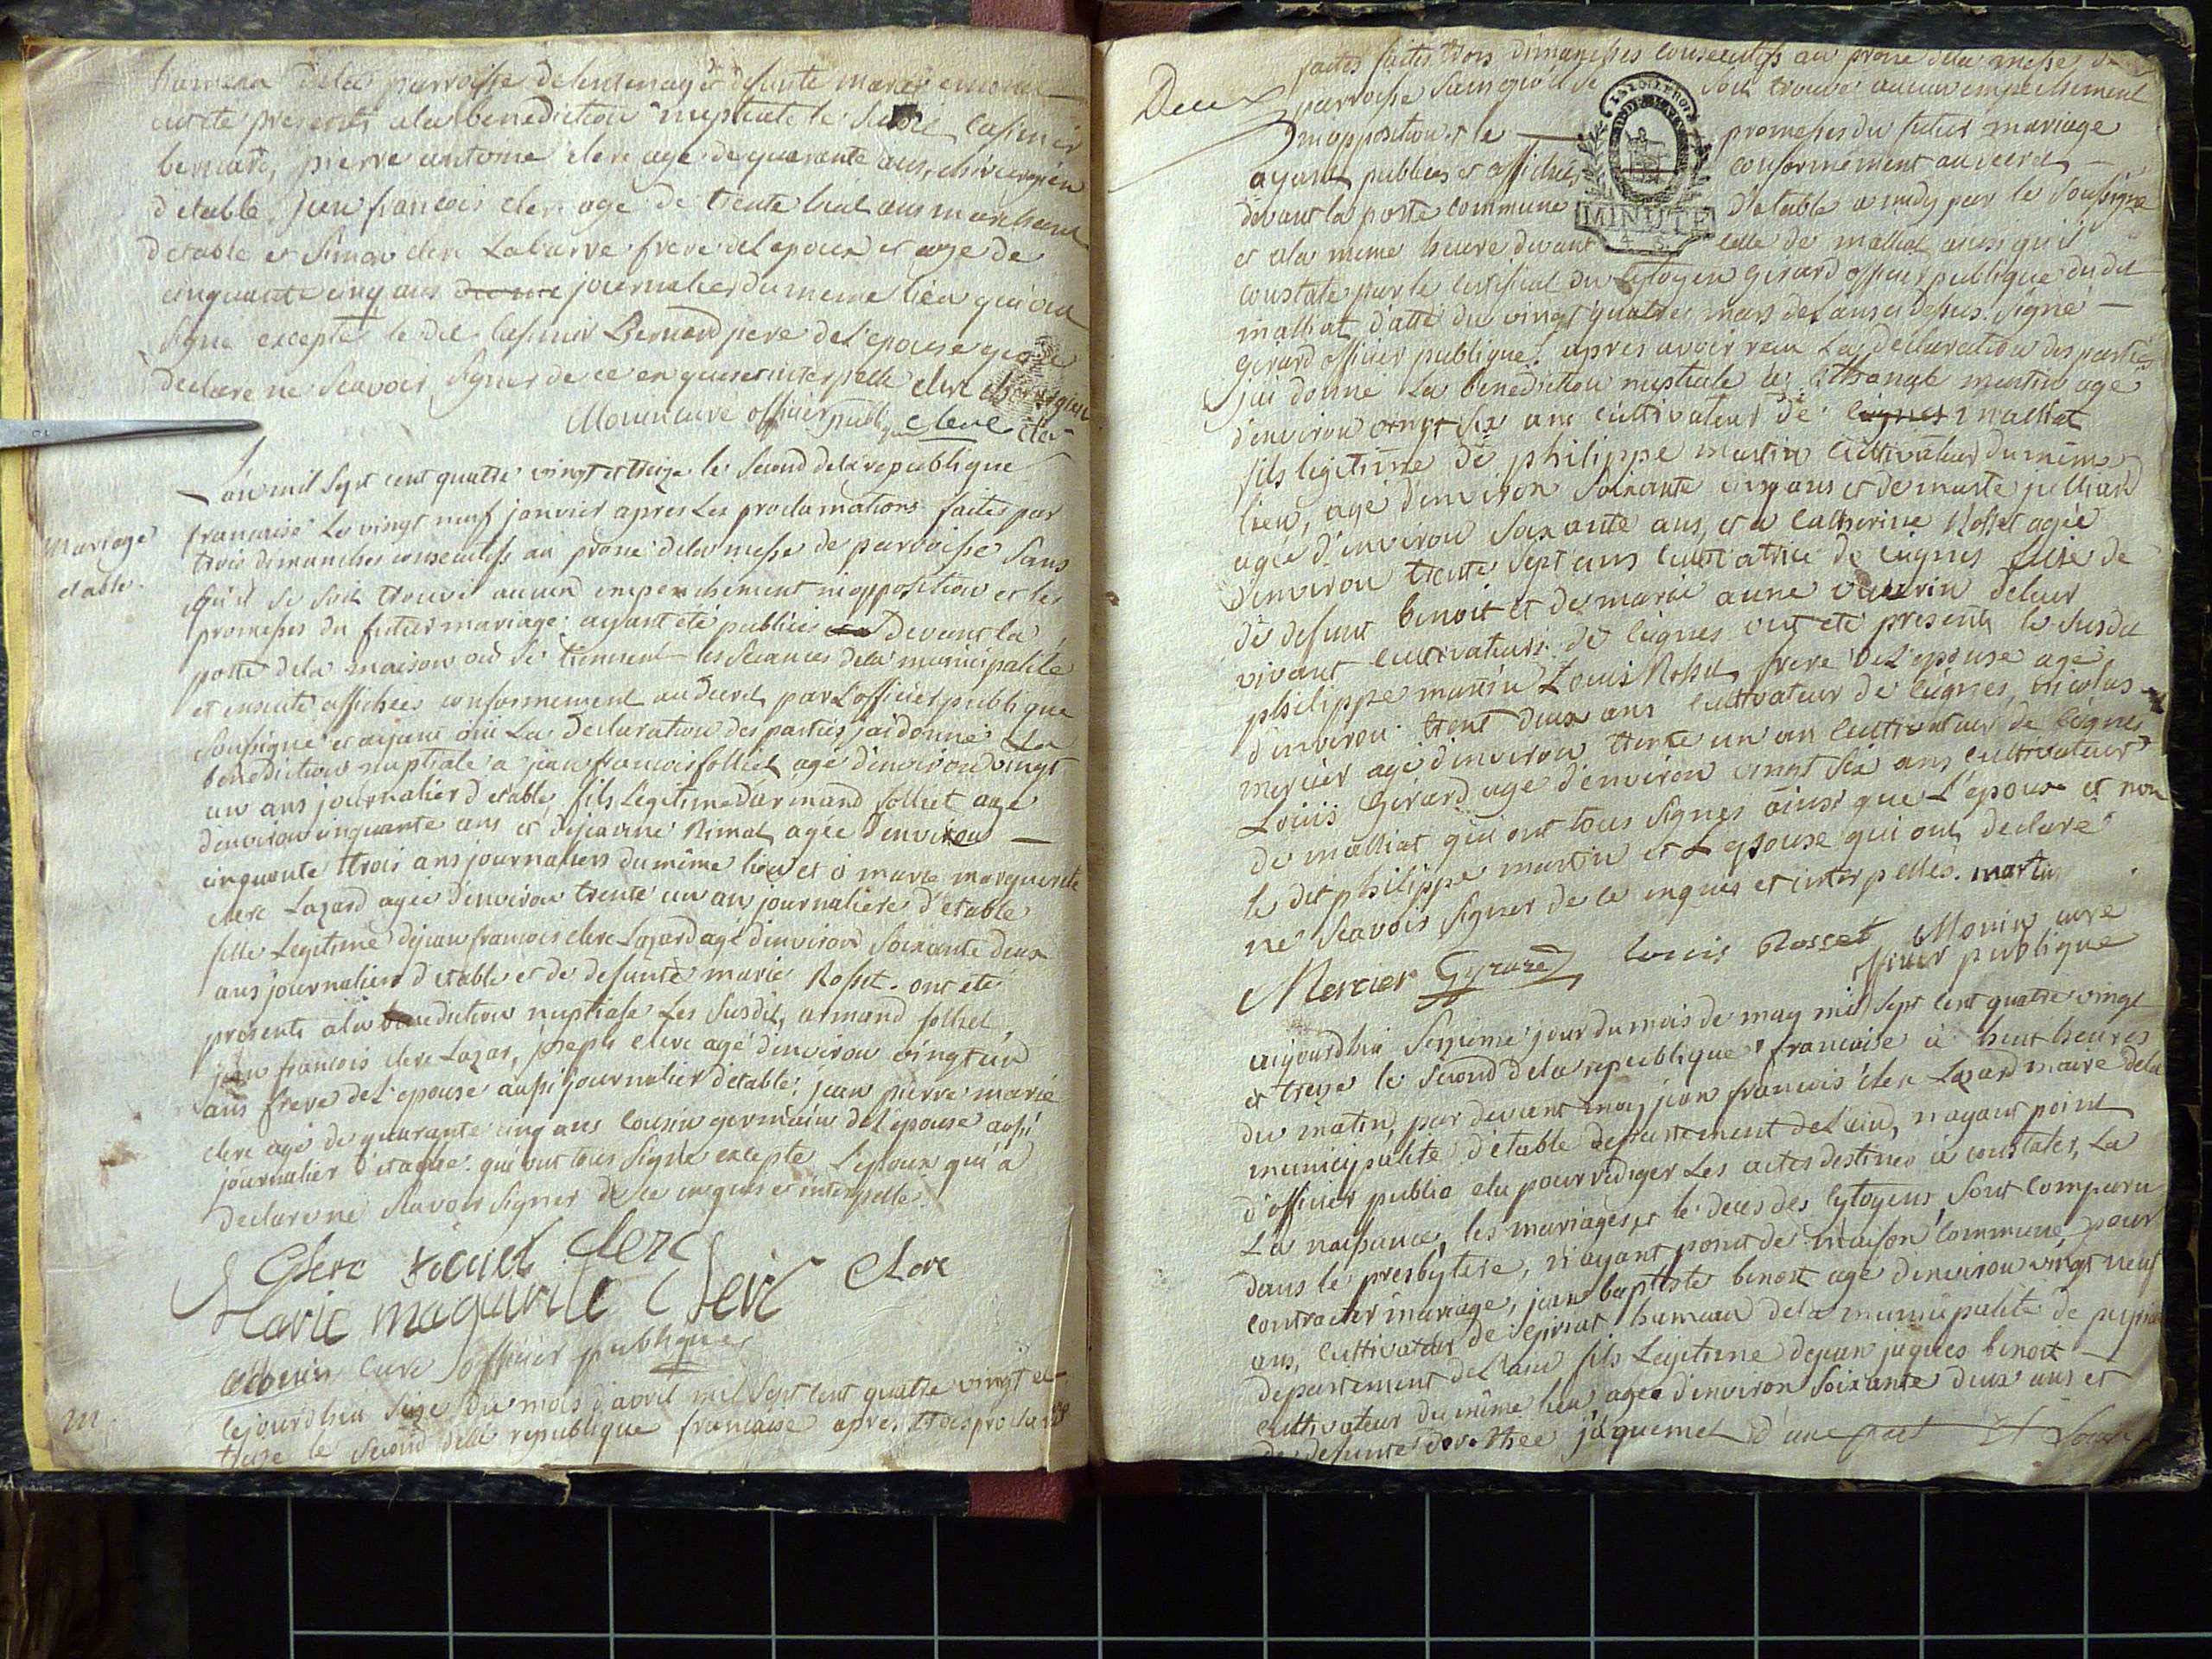 hameau de la parroisse de lentenay et defunte marie
ont été presents a la benediction nuptiale le susdit Casimir
bernard, pierre antoine clerc agé de quarante ans, chirurgien
d'etable, jean francois clerc agé de trente huit ans marchand
d'etable et Simon clerc Labarre frere de l'epoux et agé de
cinquante cinq ans journalier du meme lieu qui ont
signé excepté le dit Casimir Bernard pere de l'epouse qui a
declare ne scavoir signer de ce enquis et interpellé clerc chirurgien
Monin curé officier publique clerc clerc
L'an mil sept cent quatre vingt et treize le second de la republique
Mariage
etable.
francaise Le vingt neuf janvier apres Les proclamations faites par
trois dimanches consecutifs au prone de la messe de parroisse sans
qu'il se soit trouvé aucun empechement ni opposition et les
promesses du futur mariage ayant été publiées devant la
porte de la maison où se tiennent les séances de la municipalité
et ensuite affichées conformement au decret par l'officier publique
soussigné et ayant oui La declaration des parties j'ai donné La
benediction nuptiale a jean francois folliet agé d'environ vingt
un ans journalier d'etable fils Legitime d'armand folliet agé
d'environ cinquante ans et de jeanne Rimat agée d'environ
cinquante trois ans journaliers du même lieu et à marie marguerite
clerc Lazard agée d'environ trente un an journaliere d'etable
fille Legitime de jean francois clerc Lazard agé d'environ soixante deux
ans journalier d'etable et de defunte marie Rosset. ont été
presents a la benediction nuptiale Les susdit, armand folliet,
jean francois clerc Lazar, joseph clerc agé d'environ vingt un
ans frere de l'epouse aussi journalier d'etable, jean pierre marie
clerc agé de quarante cinq ans cousin germain de l'epouse aussi
journalier d'etable. qui ont tous signé excepté L'epoux qui a
declare ne scavoir signer de ce enquis et interpellé.
Clerc clerc
Marie magarite Clerc Clerc
Monin curé officier publique
Cejourdhui seize du mois d'avril mil sept cent quatre vingt et
m
treize le second de la republique francaise apres trois proclama
Deux
faites faites trois dimanches consecutifs au prone de la messe de
parroisse sans qu'il se soit trouvé aucun empechement
ni opposition et le promesses du futur mariage
ayant publiées et affichées conformement au decret
devant la porte commune d'etable a midy par le soussigné
MINUTE
et a la meme heure devant celle de malliat ainsi qu'il
constate par le certificat du Citoyen Girard officier publique du dit
malliat d'atté du vingt quatre mars de l'ans ci dessus. signé
Gerard officier publique. apres avoir reçu La declaration des parties
j'ai donné La benediction nuptiale a athanale martin agé
d'environ vingt six ans cultivateur de malliat
fils legitime de philippe martin cultivateur du même
lieu, agé d'environ soixante cinq ans et de marte julliard
agée d'environ soixante ans, et a Catherine Rosset agée
d'environ trente sept ans cultivatrice de Ceignes fille de
de defunt benoit et de marie anne de leur
vivant cultivateurs de Ceignes ont été presents le susdit
philippe martin Louis Rosset frere de l'epouse agé
d'environ trent deux ans cultivateur de Ceignes, Nicolas
mercier agé d'environ trente un an cultivateur de Ceignes
Louis Gerard agé d'environ vingt six ans cultivateur
de malliat qui ont tous signes ainsi que L'epoux et non
le dit philippe martin et L'epouse qui ont declaré
ne scavoir signer de ce enquis et interpellés. martin
Mercier Gyrard Louis Rosset Monin curé
officier publique
aujourdhui sixieme jour du mois de may mil sept cent quatre vingt
et treize le second de la republique francaise à huit heures
du matin, par devant moy jean francois clerc Lazard maire de la
municipalité d'etable departement de L'ain, n'ayant point
d'officier public elu pour rediger Les actes destinés à constater, La
La naissance, les mariages et le deces des Cytoyens, sont comparu
dans le presbytere, n'ayant point de maison commune, pour
contracter mariage, jean baptiste benoit agé d'environ vingt neuf
ans, cultivateur de hameau de la municipalité de
departement de L'ain fils Legitime de jean jaques benoit
cultivateur du même lieu agée d'environ soixante deux ans et
de defunte dorothée jaquemet d'une part